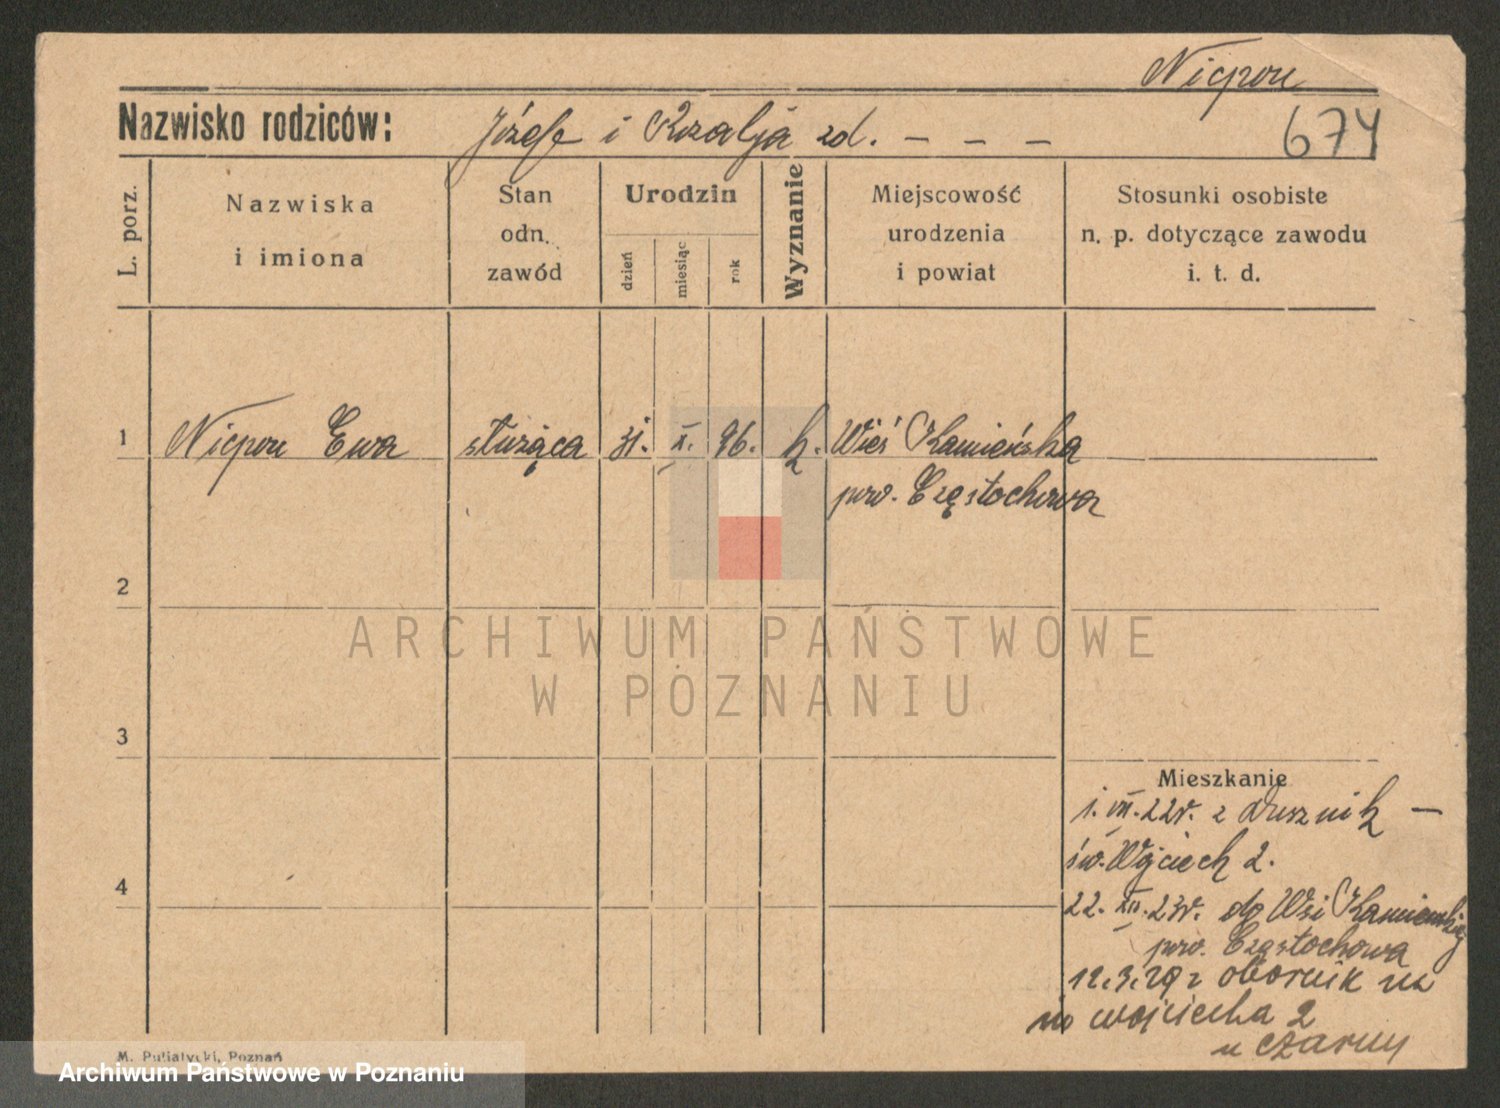 Nicpoń
Nazwisko rodziców: Józef i Rozalja zd. — — —
674
L. porz.
Nazwiska
i imiona
Stan
odn.
zawód
Urodzin
dzień
miesiąc
rok
Wyznanie
Miejscowość
urodzenia
i powiat
Stosunki osobiste
n. p. dotyczące zawodu
i. t. d.
1 Nicpoń Ewa służąca 31. X. 96. k. Wieś Kamieńska
pow. Częstochowa
2
ARCHIWUM PAŃSTWOWE
W POZNANIU
3
Mieszkanie
1. VII. 22r. z Dusznik —
św. Wojciech 2.
4
22. XII. 23r. do Wsi Kamieńskiej
pow. Częstochowa
12.3.29 z Obornik na
św Wojciecha 2
u Czarny
M. Putiatycki, Poznań
Archiwum Państwowe w Poznaniu